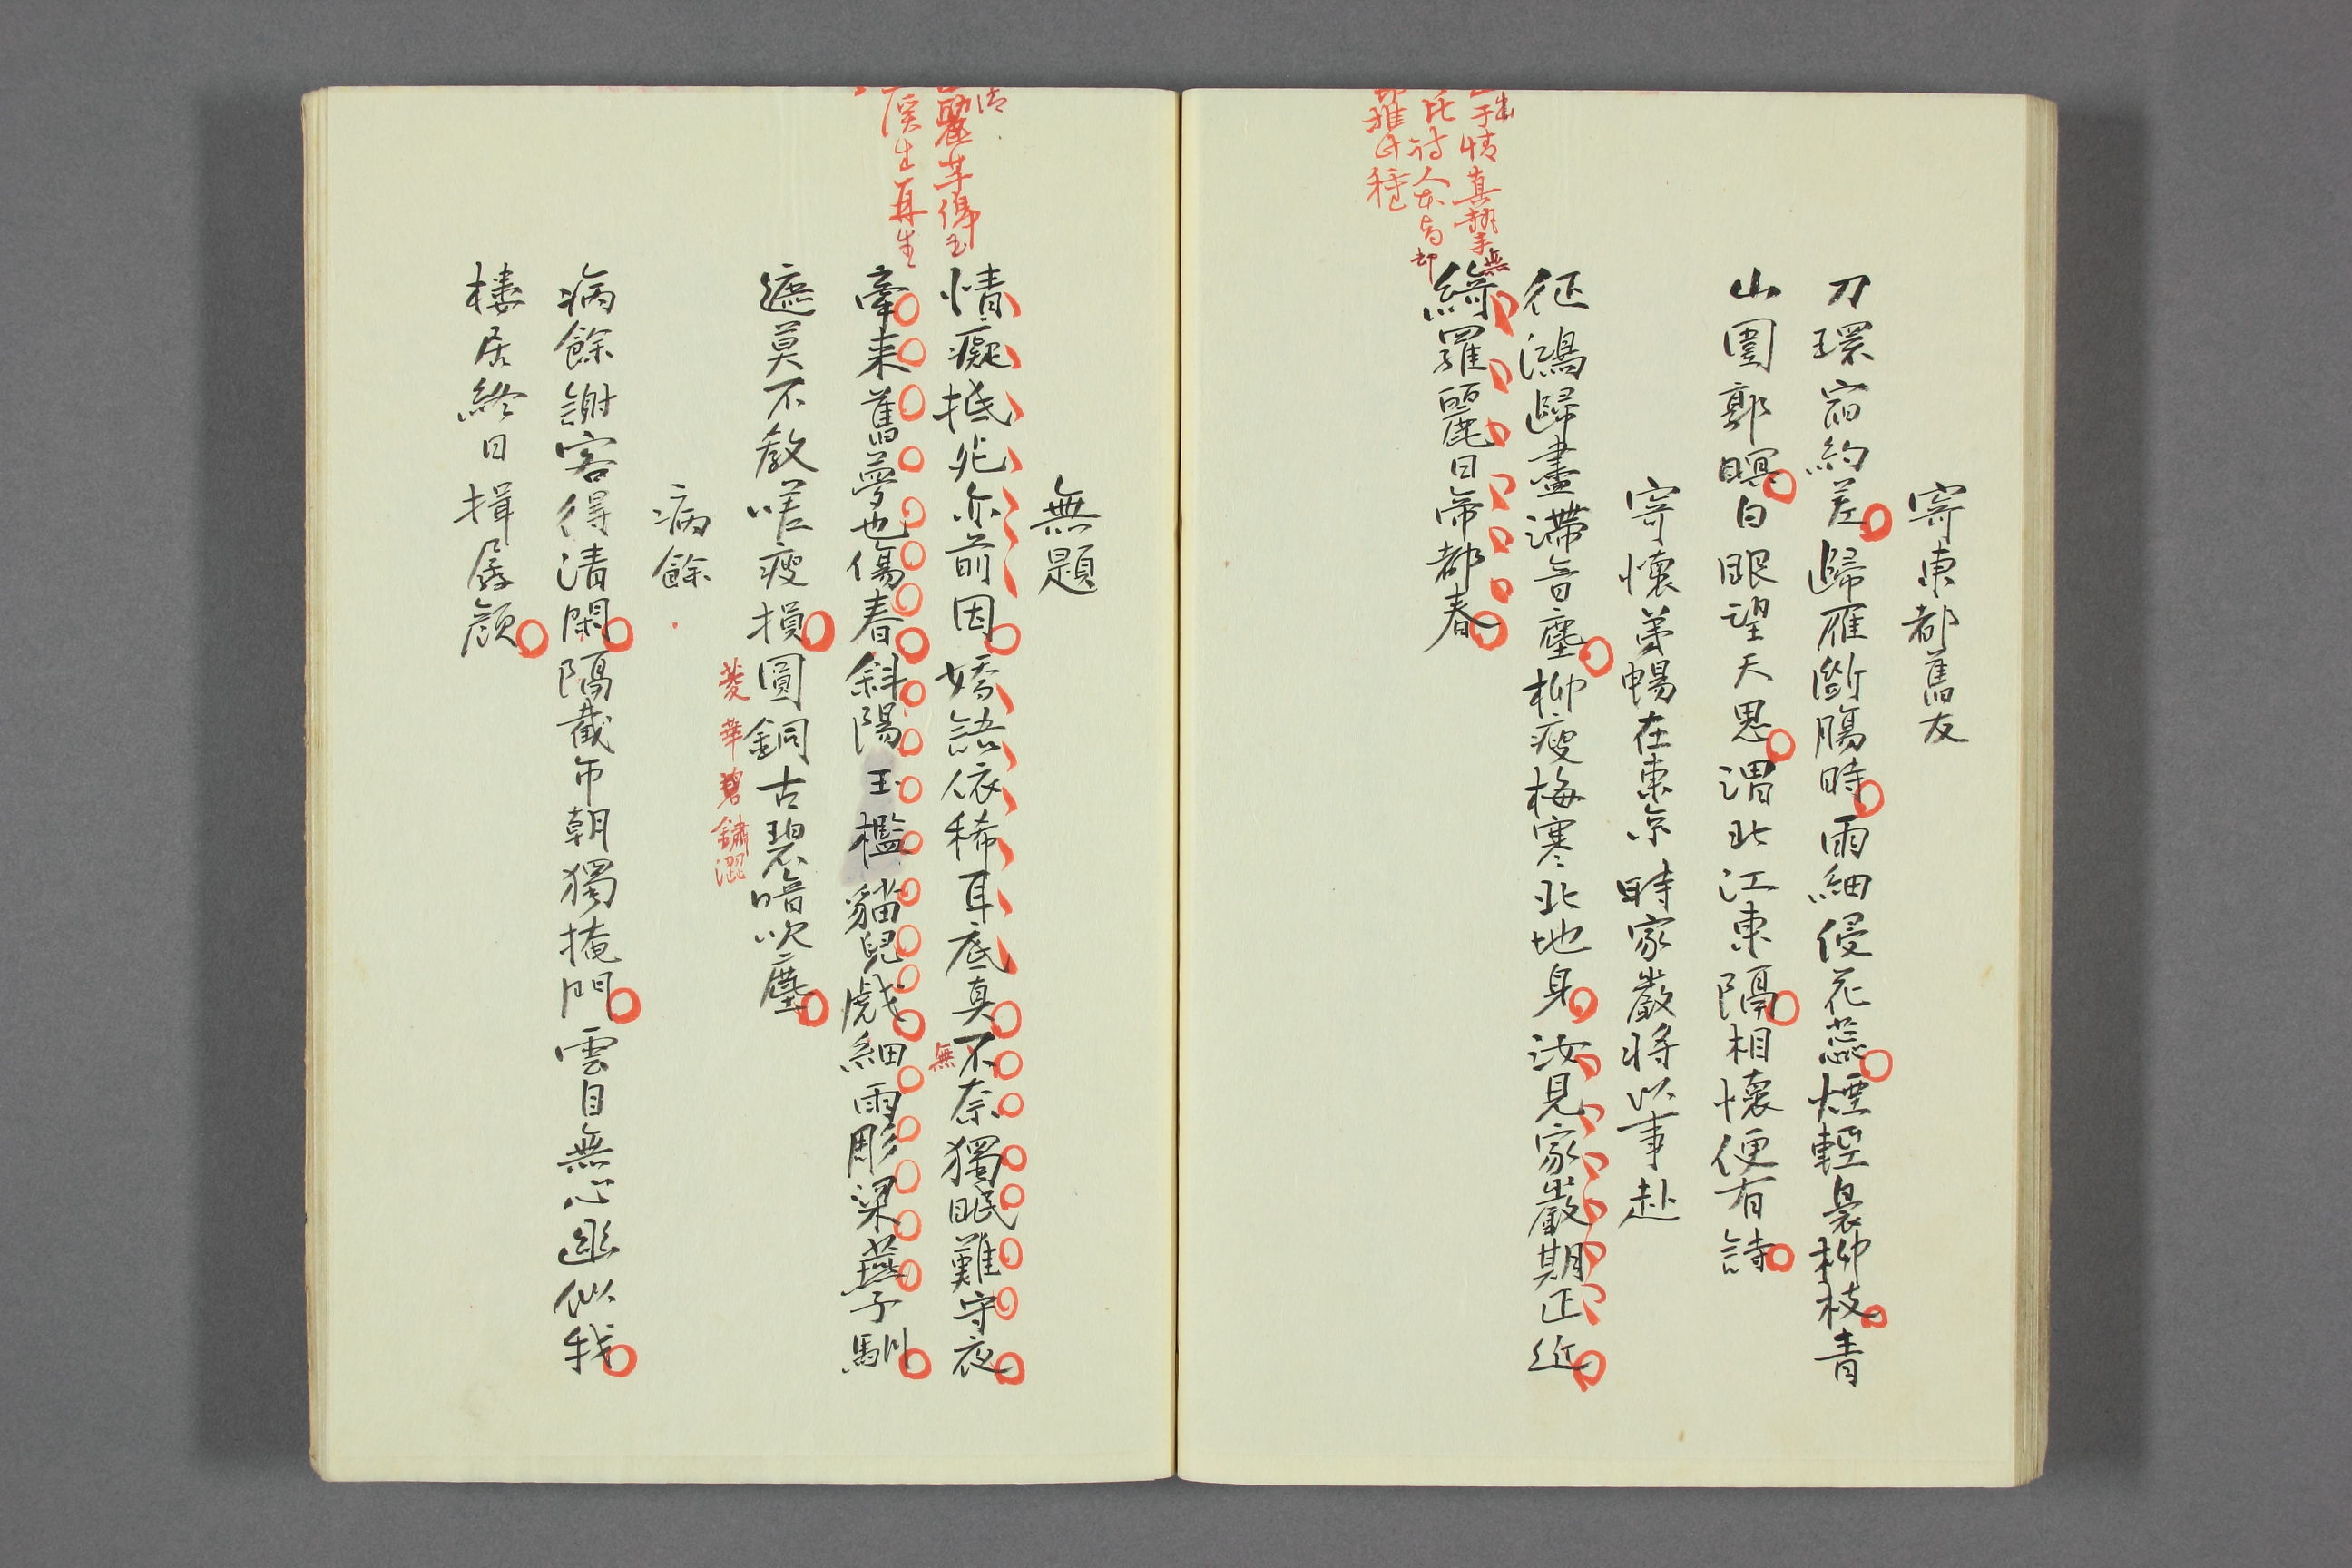 寄東都舊友
刀環宿約差歸雁斷腸時雨細侵花蕊煙輕裊柳枝青
山圍郭暝白眼望天思渭北江東隔相懷便有詩
寄懷弟暢在東京時家嚴將以事赴
征鴻歸盡滯音塵柳瘦梅寒北地身汝見家嚴期正近
綺羅麗日帝都春
出
于情真摯無
此詩人本旨却
推此種
無題
情癡抵死亦前因嬌語依稀耳底真不奈獨眠難守夜
無
牽来舊夢也傷春斜陽玉檻貓兒戲細雨彫梁燕子馴
遮莫不教嗟瘦損圓銅古碧暗吹塵
菱華碧鏽澀
清
麗芊綿玉
溪生再生
病餘
病餘謝客得清閑隔截市朝獨掩門雲自無心遥似我
樓居終日揖孱顔